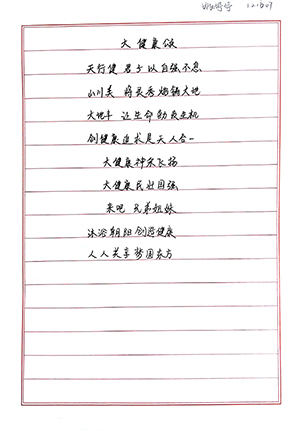 大健康颂
天行健 君子以自强不息
山川美 蒋长秀 锦绣大地
大地丰 让生命勃发生机
创健康 追求是天人合一
大健康神采飞扬
大健康民壮国强
来吧 兄弟姐妹
沐浴朝阳创造健康
人人共享梦圆东方